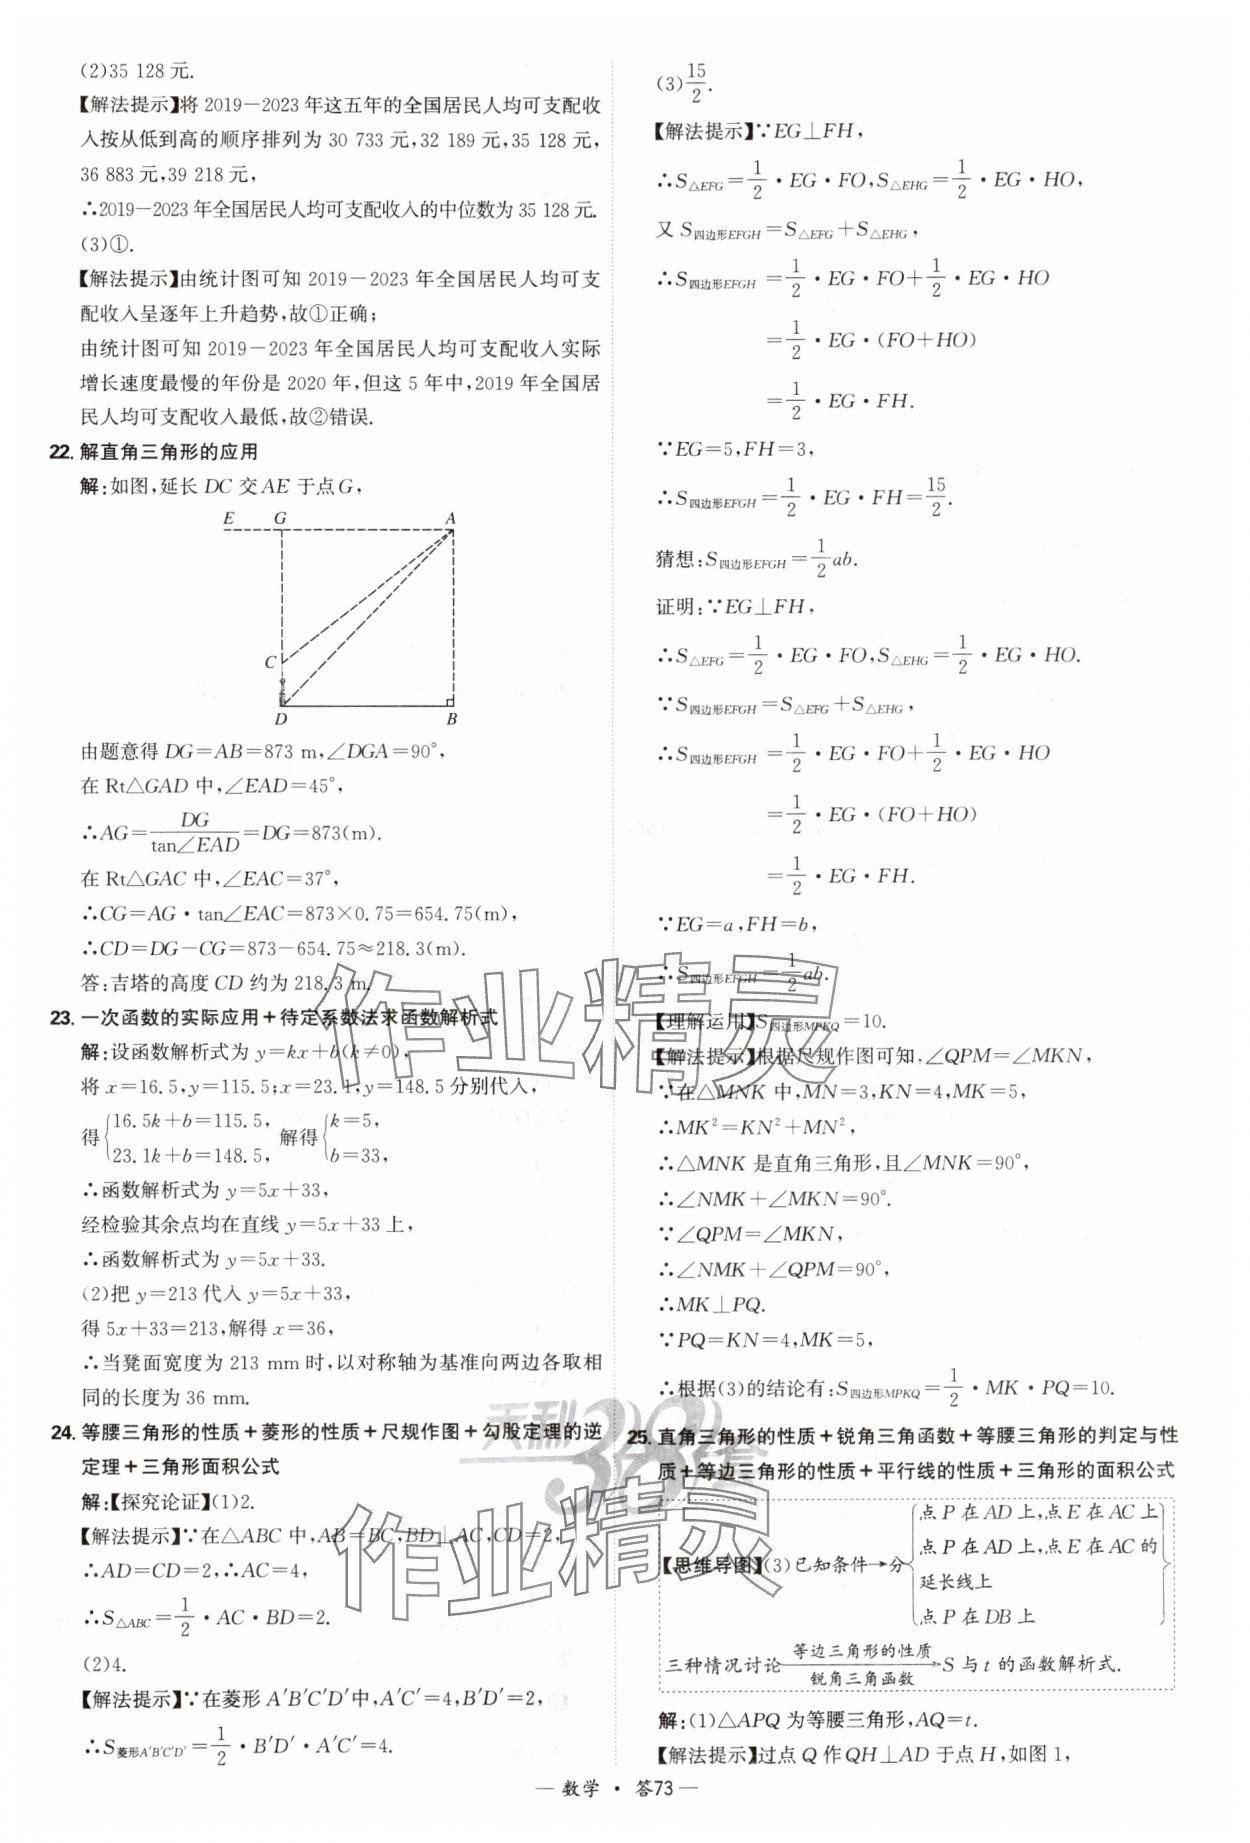 (2)35 128 元.
【解法提示】将 2019－2023 年这五年的全国居民人均可支配收
入按从低到高的顺序排列为 30 733 元,32 189 元,35 128 元,
36 883 元,39 218 元,
∴2019－2023 年全国居民人均可支配收入的中位数为 35 128 元.
(3)①.
【解法提示】由统计图可知 2019－2023 年全国居民人均可支
配收入呈逐年上升趋势,故①正确;
由统计图可知 2019－2023 年全国居民人均可支配收入实际
增长速度最慢的年份是 2020 年,但这 5 年中,2019 年全国居
民人均可支配收入最低,故②错误.
22. 解直角三角形的应用
解:如图,延长 DC 交 AE 于点 G,
E G A
C
D B
由题意得 DG=AB=873 m,∠DGA=90°,
在 Rt△GAD 中,∠EAD=45°,
∴AG=DG/tan∠EAD=DG=873(m).
在 Rt△GAC 中,∠EAC=37°,
∴CG=AG·tan∠EAC=873×0.75=654.75(m),
∴CD=DG－CG=873－654.75≈218.3(m).
答:吉塔的高度 CD 约为 218.3 m.
23. 一次函数的实际应用＋待定系数法求函数解析式
解:设函数解析式为 y=kx+b(k≠0),
将 x=16.5,y=115.5;x=23.1,y=148.5 分别代入,
得{16.5k+b=115.5, 23.1k+b=148.5, 解得{k=5, b=33,
∴函数解析式为 y=5x+33,
经检验其余点均在直线 y=5x+33 上,
∴函数解析式为 y=5x+33.
(2)把 y=213 代入 y=5x+33,
得 5x+33=213,解得 x=36,
∴当凳面宽度为 213 mm 时,以对称轴为基准向两边各取相
同的长度为 36 mm.
24. 等腰三角形的性质＋菱形的性质＋尺规作图＋勾股定理的逆
定理＋三角形面积公式
解:【探究论证】(1)2.
【解法提示】∵在△ABC 中,AB=BC,BD⊥AC,CD=2,
∴AD=CD=2,∴AC=4,
∴S△ABC=1/2·AC·BD=2.
(2)4.
【解法提示】∵在菱形 A'B'C'D'中,A'C'=4,B'D'=2,
∴S菱形A'B'C'D'=1/2·B'D'·A'C'=4.
(3)15/2.
【解法提示】∵EG⊥FH,
∴S△EFG=1/2·EG·FO,S△EHG=1/2·EG·HO,
又 S四边形EFGH=S△EFG+S△EHG,
∴S四边形EFGH=1/2·EG·FO+1/2·EG·HO
=1/2·EG·(FO+HO)
=1/2·EG·FH.
∵EG=5,FH=3,
∴S四边形EFGH=1/2·EG·FH=15/2.
猜想:S四边形EFGH=1/2ab.
证明:∵EG⊥FH,
∴S△EFG=1/2·EG·FO,S△EHG=1/2·EG·HO.
∵S四边形EFGH=S△EFG+S△EHG,
∴S四边形EFGH=1/2·EG·FO+1/2·EG·HO
=1/2·EG·(FO+HO)
=1/2·EG·FH.
∵EG=a,FH=b,
∴S四边形EFGH=1/2ab.
【理解运用】S四边形MPKQ=10.
【解法提示】根据尺规作图可知,∠QPM=∠MKN,
∵在△MNK 中,MN=3,KN=4,MK=5,
∴MK²=KN²+MN²,
∴△MNK 是直角三角形,且∠MNK=90°,
∴∠NMK+∠MKN=90°.
∵∠QPM=∠MKN,
∴∠NMK+∠QPM=90°,
∴MK⊥PQ.
∵PQ=KN=4,MK=5,
∴根据(3)的结论有:S四边形MPKQ=1/2·MK·PQ=10.
25. 直角三角形的性质＋锐角三角函数＋等腰三角形的判定与性
质＋等边三角形的性质＋平行线的性质＋三角形的面积公式
【思维导图】(3)已知条件→分{
点 P 在 AD 上,点 E 在 AC 上
点 P 在 AD 上,点 E 在 AC 的
延长线上
点 P 在 DB 上
}
三种情况讨论 等边三角形的性质 锐角三角函数→S 与 t 的函数解析式.
解:(1)△APQ 为等腰三角形,AQ=t.
【解法提示】过点 Q 作 QH⊥AD 于点 H,如图 1,
— 数学 · 答73 —
作业精灵
天利38套
作业精灵